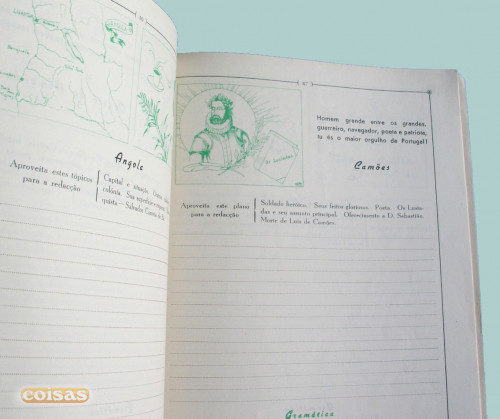 46
LUANDA
Angola
Aproveita estes tópicos
para a redacção
Capital e situação.
colónia. Sua superfície e
quista — Salvador Correia de Sá.
47
Os Lusíadas
Homem grande entre os grandes,
guerreiro, navegador, poeta e patriota,
tu és o maior orgulho de Portugal!
Camões
Aproveita este plano
para a redacção
Soldado heróico. Seus feitos gloriosos. Poeta. Os Lusía-
das e seu assunto principal. Oferecimento a D. Sebastião.
Morte de Luís de Camões.
Gramática
coisas